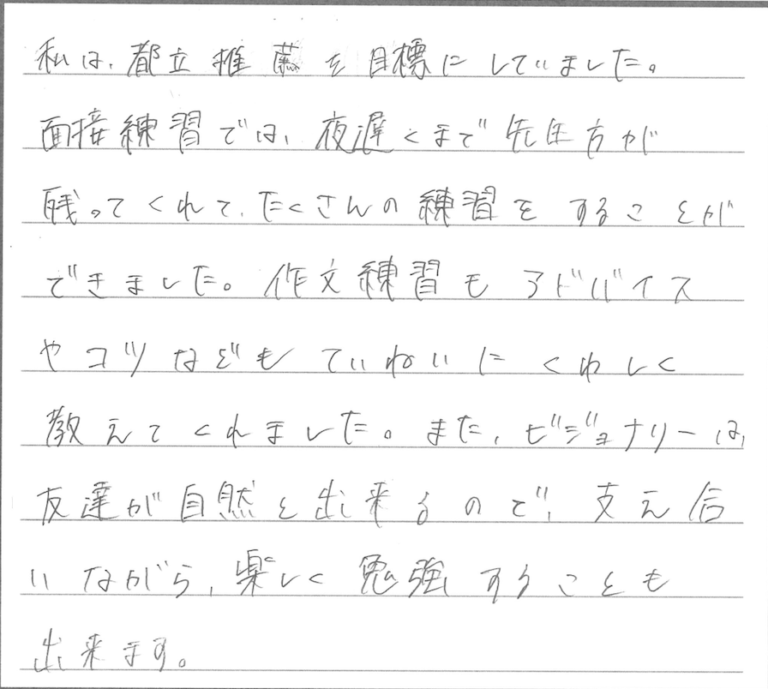 私は、都立推薦を目標にしていました。
面接練習では、夜遅くまで先生方が
残ってくれて、たくさんの練習をすることが
できました。作文練習もアドバイス
やコツなどもていねいにくわしく
教えてくれました。また、ビジョナリーは、
友達が自然と出来るので、支え合
いながら、楽しく勉強することも
出来ます。